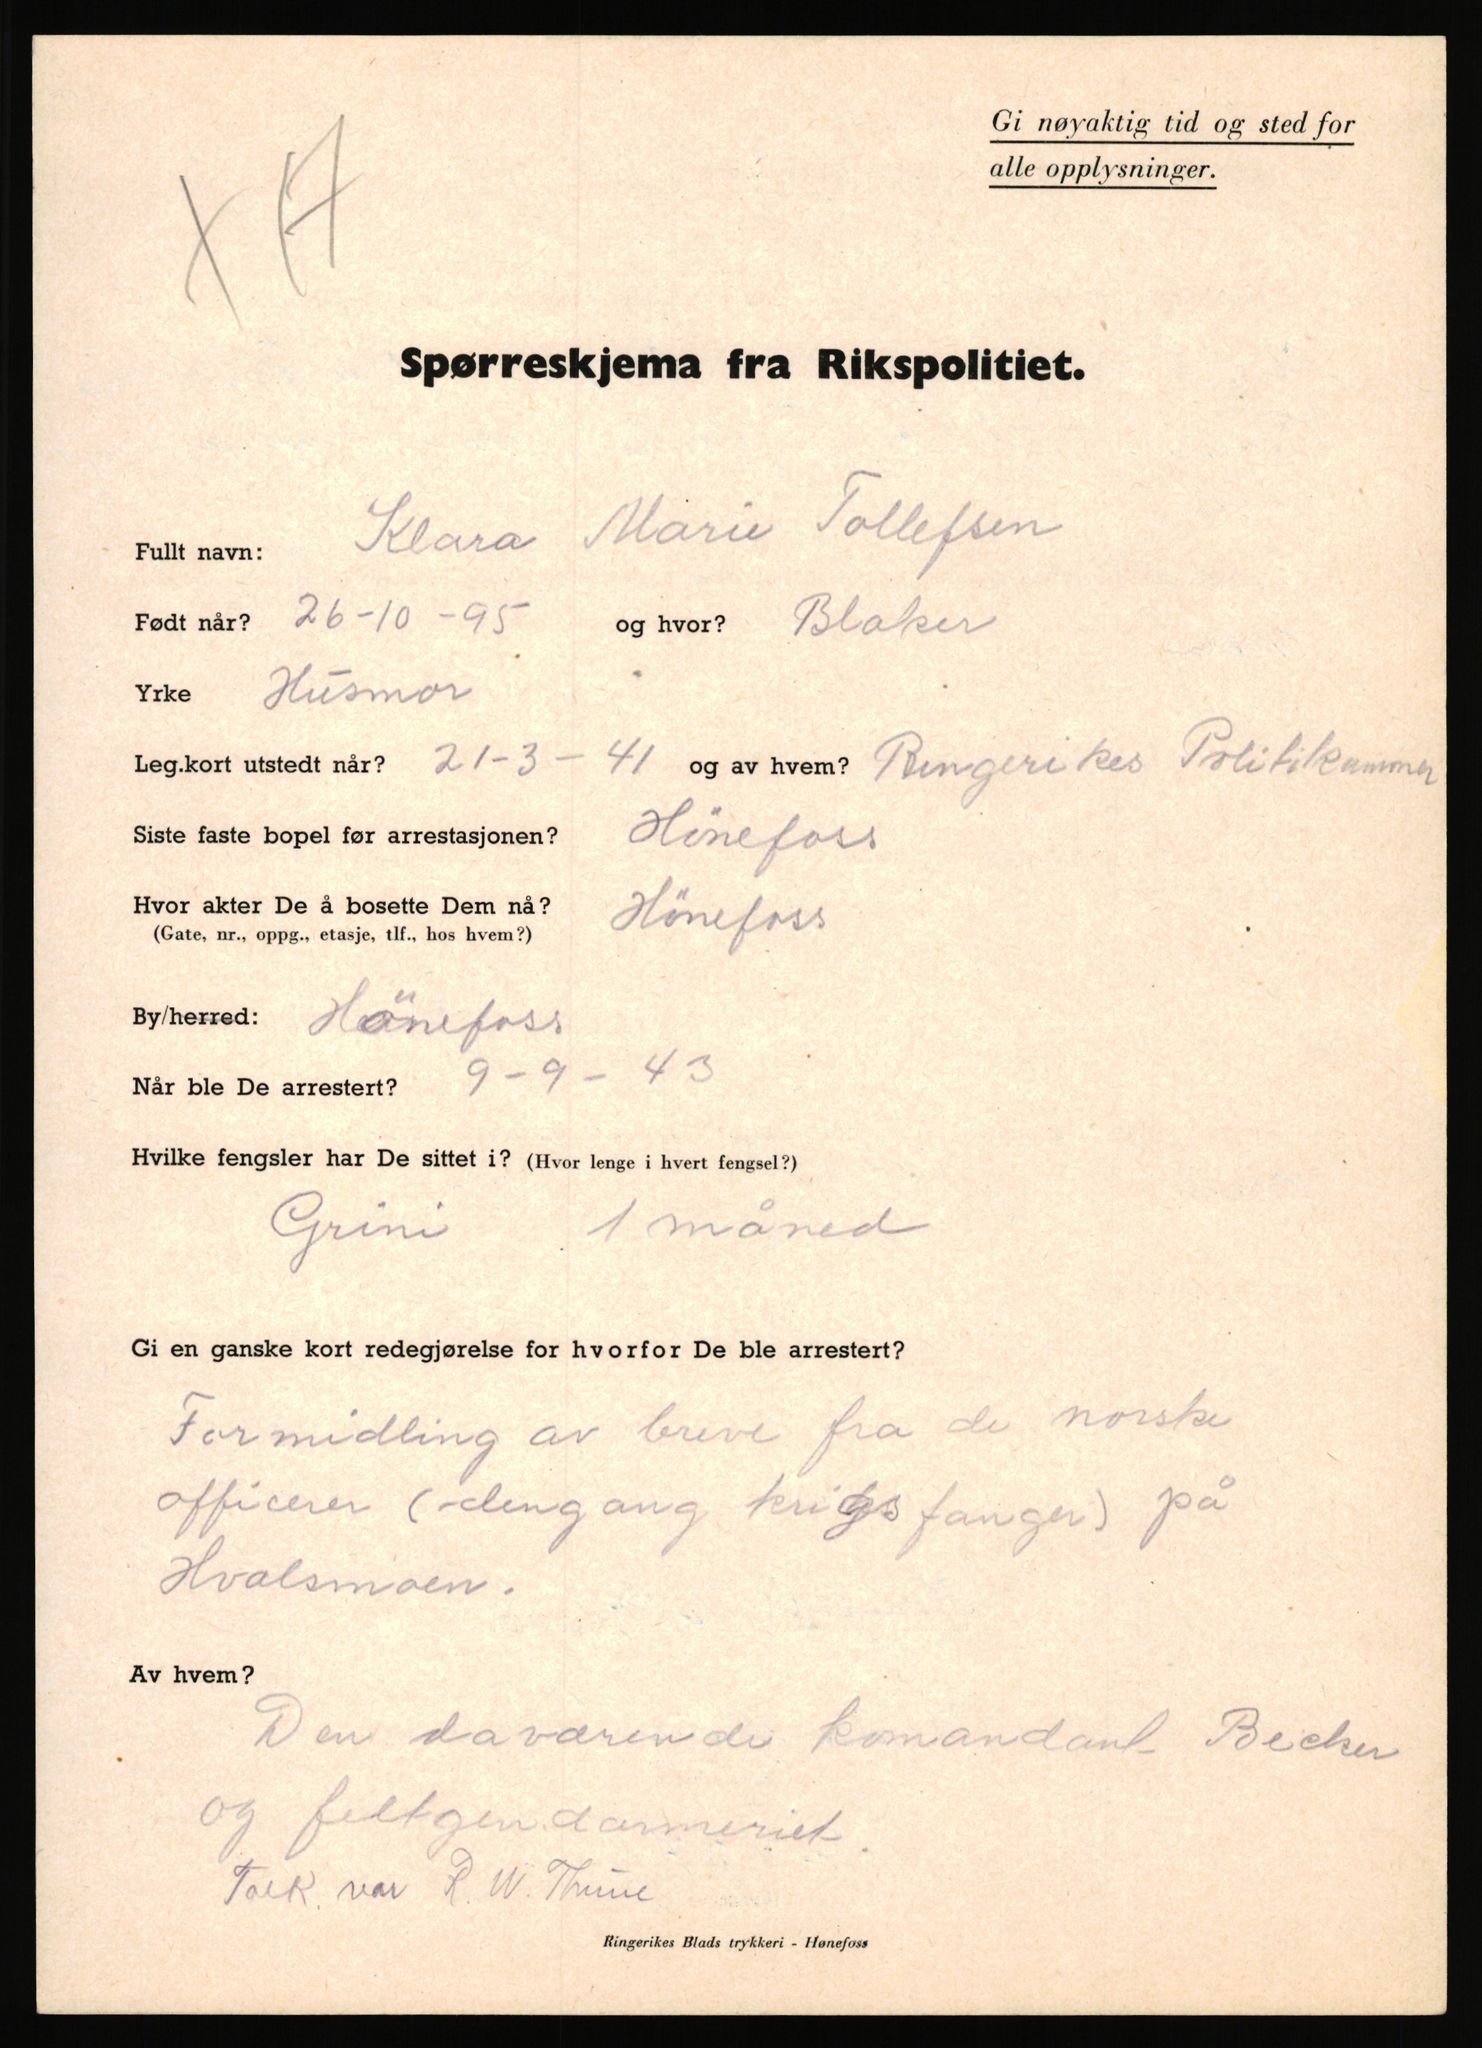 Gi nøyaktig tid og sted for
alle opplysninger.
X A
Spørreskjema fra Rikspolitiet.
Fullt navn: Klara Marie Tollefsen
Født når? 26-10-95 og hvor? Blaker
Yrke Husmor
Leg.kort utstedt når? 21-3-41 og av hvem? Ringerikes Politikammer
Siste faste bopel før arrestasjonen? Hönefoss
Hvor akter De å bosette Dem nå? Hönefoss
(Gate, nr., oppg., etasje, tlf., hos hvem?)
By/herred: Hönefoss
Når ble De arrestert? 9-9-43
Hvilke fengsler har De sittet i? (Hvor lenge i hvert fengsel?)
Grini 1 måned
Gi en ganske kort redegjørelse for hvorfor De ble arrestert?
Formidling av breve fra de norske
officerer (dengang krigsfanger) på
Hvalsmoen.
Av hvem?
Den daværende komandant Becker
og feltgendarmeriet.
Tolk var R. W. Thune
Ringerikes Blads trykkeri - Hønefoss